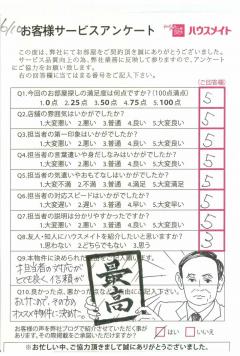 6/10
お客様サービスアンケート
ハウスメイト
この度は、弊社にてお部屋をご契約頂き誠にありがとうございました。
サービス品質向上の為、弊社業務に反映して参りますので、アンケート
にご協力をお願い致します。
右の回答欄に当てはまる番号をご記入下さい。
(ご回答欄)
Q1.今回のお部屋探しの満足度は何点ですか?(100点満点)
1.0点 2.25点 3.50点 4.75点 5.100点
5
Q2.店舗の雰囲気はいかがでしたか?
1.大変悪い 2.悪い 3.普通 4.良い 5.大変良い
5
Q3.担当者の第一印象はいかがでしたか?
1.大変悪い 2.悪い 3.普通 4.良い 5.大変良い
5
Q4.担当者の言葉遣いや身だしなみはいかがでしたか?
1.大変悪い 2.悪い 3.普通 4.良い 5.大変良い
5
Q5.担当者の気遣いやおもてなしはいかがでしたか?
1.大変不満 2.不満 3.普通 4.満足 5.大変満足
5
Q6.担当者の対応スピードはいかがでしたか?
1.大変遅い 2.遅い 3.普通 4.早い 5.大変早い
5
Q7.担当者の説明は分かりやすかったですか?
1.大変悪い 2.悪い 3.普通 4.良い 5.大変良い
5
Q8.友人・知人にハウスメイトを紹介したいと思いますか?
1.思わない 2.どちらでもない 3.思う
3
Q9.本物件に決められた
担当者の対応が
とても良く、信頼が
最高
お客様の声を弊社ブログで紹介させていただく事が
あります。その際掲載をご承諾いただけますか?
はい いいえ
※お忙しい中、ご協力頂きまして誠にありがとうございました※